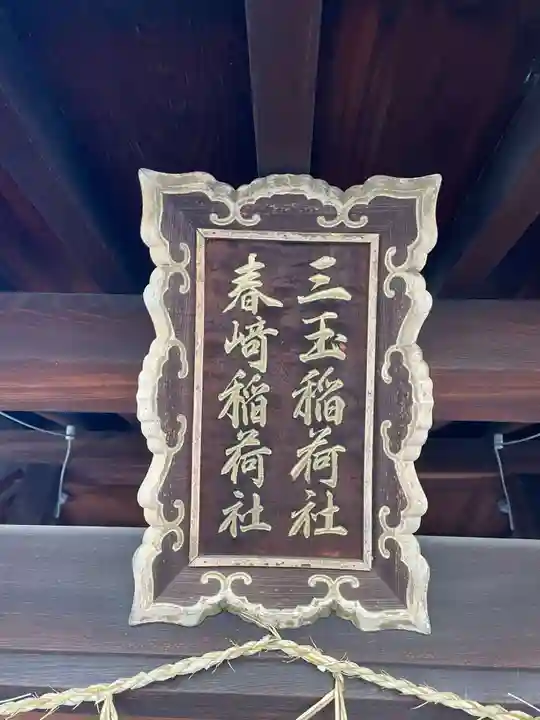 三玉稲荷社
春﨑稲荷社